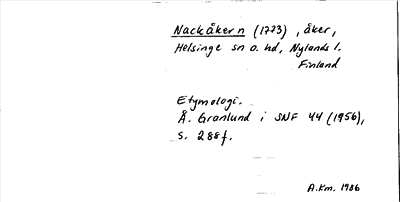 Nackåkern (1773), åker,
Helsinge sn o. hd, Nylands l.
Finland
Etymologi.
Å. Granlund i SNF 44 (1956),
s. 288f.
A.Km. 1986